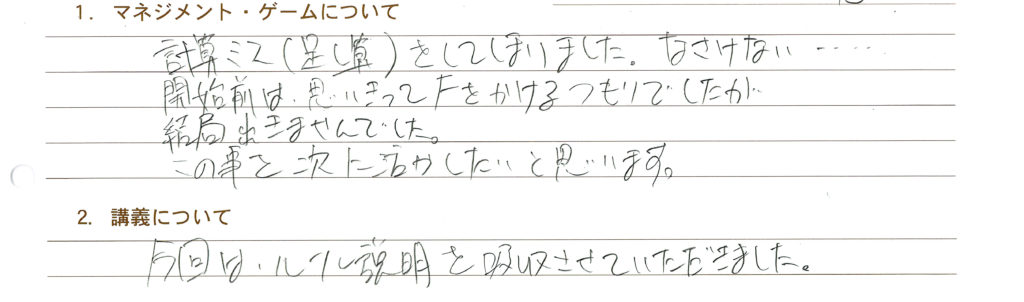 1. マネジメント・ゲームについて
計算ミス(足し算)をしてしまいました。なさけない……
開始前は、思いきってFをかけるつもりでしたが
結局出きませんでした。
この事を次に活かしたいと思います。
2. 講義について
今回は、ルール説明を吸収させていただきました。